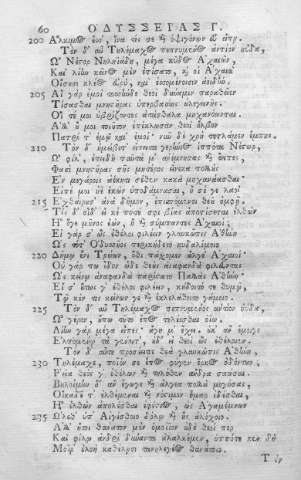 60 ΟΔΥΣΣΕΙΑΣ Γ.
200 Ἄλκιμος ἔσσ', ἵνα τίς σε καὶ ὀψιγόνων εὖ εἴπῃ.
Τὸν δ' αὖ Τηλέμαχος πεπνυμένος ἀντίον ηὔδα,
Ὦ Νέστορ Νηληϊάδη, μέγα κῦδος Ἀχαιῶν,
Καὶ λίην κεῖνος μὲν ἐτίσατο, καί οἱ Ἀχαιοὶ
Οἴσουσι κλέος εὐρὺ, καὶ ἐσσομένοισιν ἀοιδήν.
205 Αἲ γὰρ ἐμοὶ τοσσήνδε θεοὶ δύναμιν παραθεῖεν
Τίσασθαι μνηστῆρας ὑπερβασίης ἀλεγεινῆς.
Οἵ τέ μοι ὑβρίζοντες ἀτάσθαλα μηχανόωνται.
Ἀλλ' οὔ μοι τοιοῦτον ἐπέκλωσαν θεοὶ ὄλβον
Πατρί τ' ἐμῷ καὶ ἐμοί· νῦν δὲ χρὴ τετλάμεν ἔμπης.
210 Τὸν δ' ἠμείβετ' ἔπειτα γερήνιος ἱππότα Νέστωρ,
Ὦ φίλ', ἐπειδὴ ταῦτά μ' ἀνέμνησας καὶ ἔειπες,
Φασὶ μνηστῆρας σῆς μητέρος εἵνεκα πολλοὺς
Ἐν μεγάροις ἀέκητι σέθεν κακὰ μηχανάασθαι·
Εἰπέ μοι ἠὲ ἑκὼν ὑποδάμνασαι, ἢ σέ γε λαοὶ
215 Ἐχθαίρουσ' ἀνὰ δῆμον, ἐπισπόμενοι θεοῦ ὀμφῇ.
Τίς δ' οἶδ' εἴ κέ ποτέ σφι βίας ἀποτίσεται ἐλθὼν
Ἢ ὅγε μοῦνος ἐὼν, ἢ καὶ σύμπαντες Ἀχαιοί.
Εἰ γάρ σ' ὣς ἐθέλοι φιλέειν γλαυκῶπις Ἀθήνη
Ὡς τότ' Ὀδυσσῆος περικήδετο κυδαλίμοιο
220 Δήμῳ ἔνι Τρώων, ὅθι πάσχομεν ἄλγε' Ἀχαιοί·
Οὐ γάρ πω ἴδον ὧδε θεοὺς ἀναφανδὰ φιλεῦντας
Ὡς κείνῳ ἀναφανδὰ παρίστατο Παλλὰς Ἀθήνη·
Εἴ σ' οὕτως γ' ἐθέλοι φιλέειν, κήδοιτό τε θυμῷ,
Τῷ κέν τις κείνων γε καὶ ἐκλελάθοιτο γάμοιο.
225 Τὸν δ' αὖ Τηλέμαχος πεπνυμένος ἀντίον ηὔδα,
Ὦ γέρον, οὔπω τοῦτο ἔπος τελέεσθαι ὀΐω.
Λίην γὰρ μέγα εἶπες· ἄγη μ' ἔχει. οὐκ ἂν ἔμοιγε
Ἐλπομένῳ τὰ γένοιτ', οὐδ' εἰ θεοὶ ὣς ἐθέλοιεν.
Τὸν δ' αὖτε προσέειπε θεὰ γλαυκῶπις Ἀθήνη,
230 Τηλέμαχε, ποῖόν σε ἔπος φύγεν ἕρκος ὀδόντων;
Ῥεῖα θεός γ' ἐθέλων καὶ τηλόθεν ἄνδρα σαώσαι.
Βουλοίμην δ' ἂν ἔγωγε καὶ ἄλγεα πολλὰ μογήσας,
Οἴκαδέ τ' ἐλθέμεναι καὶ νόστιμον ἦμαρ ἰδέσθαι,
Ἢ ἐλθὼν ἀπολέσθαι ἐφέστιος, ὡς Ἀγαμέμνων
235 Ὤλεθ' ὑπ' Αἰγίσθοιο δόλῳ καὶ ἧς ἀλόχοιο.
Ἀλλ' ἤτοι θάνατον μὲν ὁμοίιον οὐδὲ θεοί περ
Καὶ φίλῳ ἀνδρὶ δύνανται ἀλαλκέμεν, ὁππότε κεν δὴ
Μοῖρ' ὀλοὴ καθέλῃσι τανηλεγέος θανάτοιο.